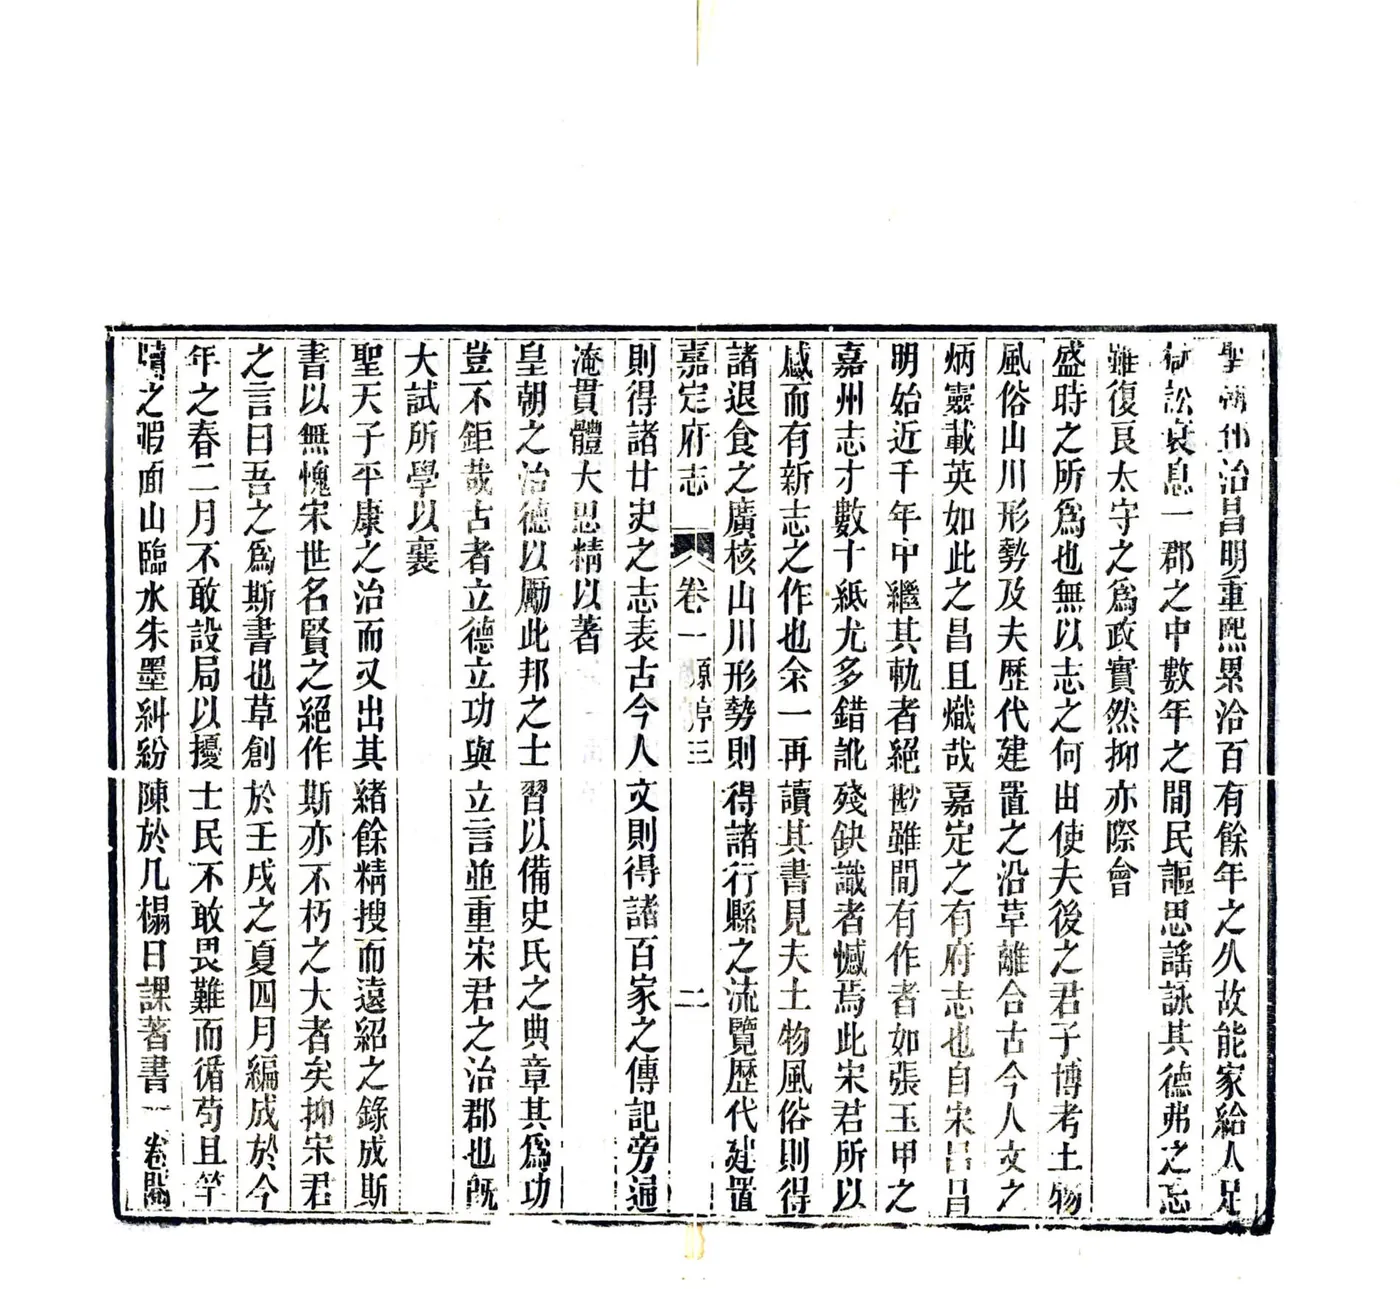 聖朝郅治昌明重熙累洽百有餘年之久故能家給人足
獄訟衰息一郡之中數年之間民謳思謠詠其德弗之忘
雖復良太守之爲政實然抑亦際會
盛時之所爲也無以志之何出使夫後之君子博考土物
風俗山川形勢及夫歷代建置之沿革離合古今人文之
炳靈載英如此之昌且熾哉嘉定之有府志也自宋呂昌
明始近千年中繼其軌者絕尠雖間有作者如張玉甲之
嘉州志才數十紙尤多錯訛殘缺識者憾焉此宋君所以
感而有新志之作也余一再讀其書見夫土物風俗則得
諸退食之廣核山川形勢則得諸行縣之流覽歷代建置
嘉定府志 卷一 原序三 二
則得諸廿史之志表古今人文則得諸百家之傳記旁通
淹貫體大思精以著
皇朝之治德以勵此邦之士習以備史氏之典章其爲功
豈不鉅哉古者立德立功與立言並重宋君之治郡也旣
大試所學以襄
聖天子平康之治而又出其緒餘精搜而遠紹之錄成斯
書以無愧宋世名賢之絕作斯亦不朽之大者矣抑宋君
之言曰吾之爲斯書也草創於壬戌之夏四月編成於今
年之春二月不敢設局以擾士民不敢畏難而循苟且竿
牘之暇面山臨水朱墨糾紛陳於几榻日課著書一卷閱